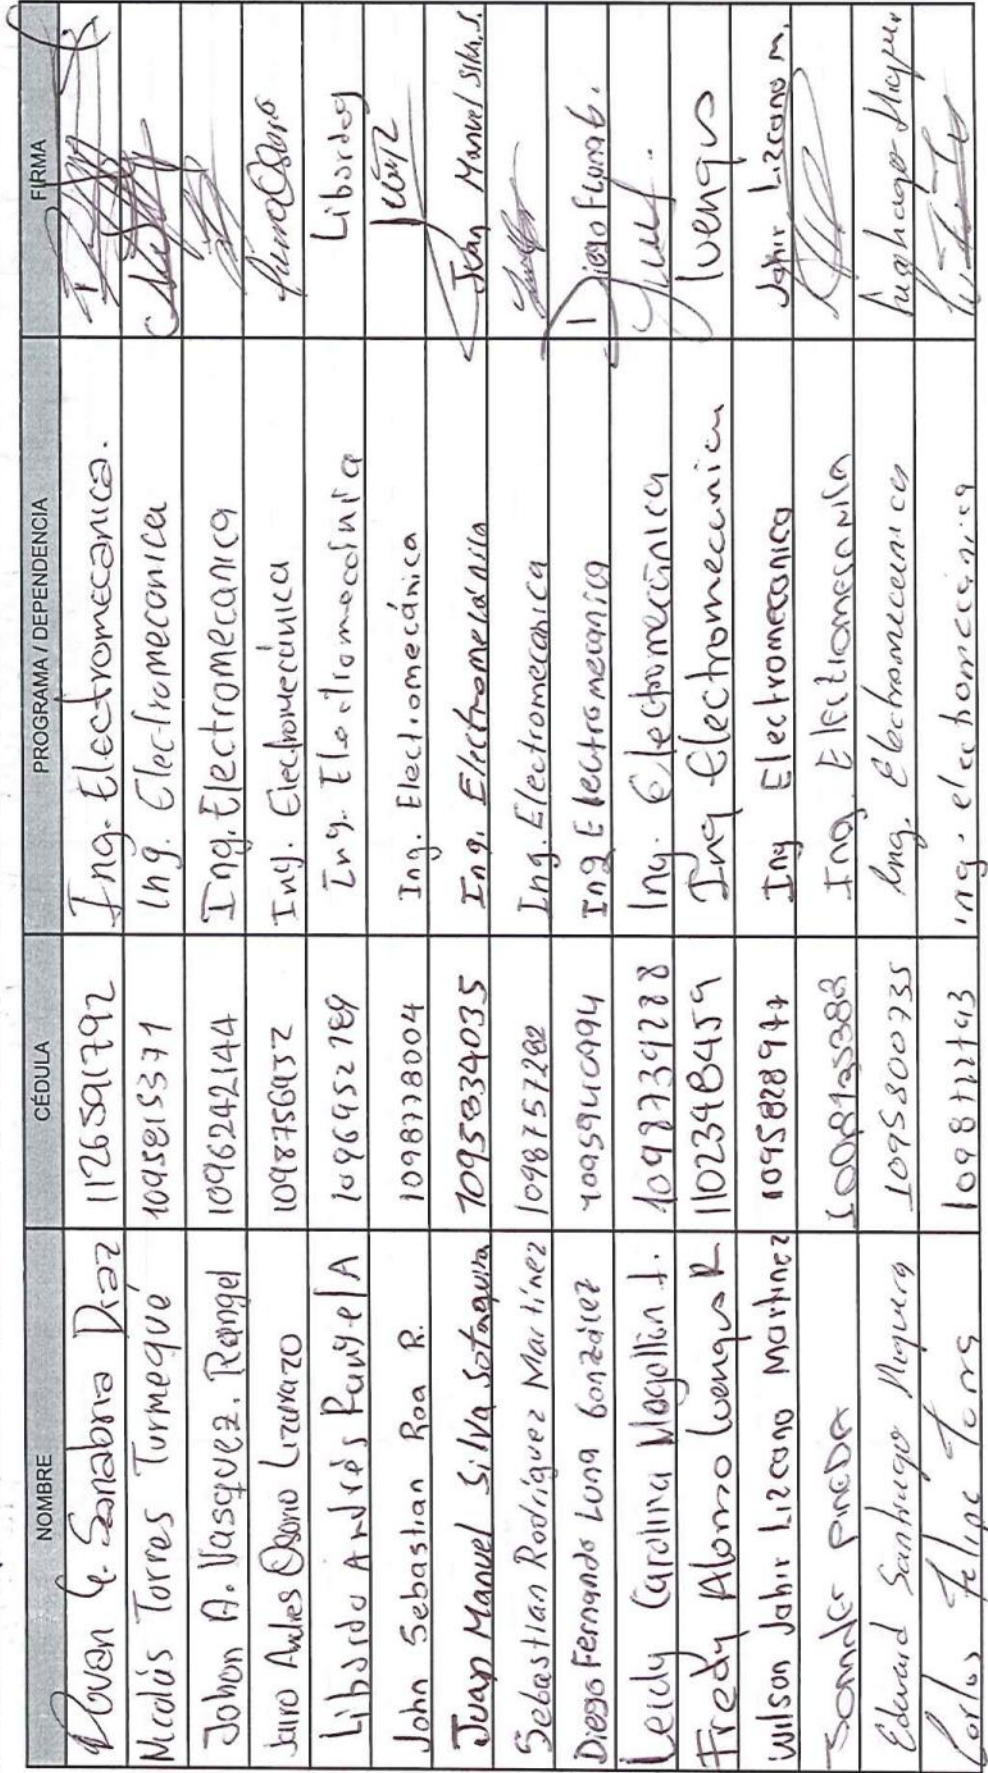 NOMBRE CÉDULA PROGRAMA / DEPENDENCIA FIRMA
Sanabria Diaz 1126591792 Ing. Electromecanica.
Nicolás Torres Turmequé 1095815371 Ing. Electromecanica
Johan A. Vasquez. Rangel 1096242144 Ing. Electromecanica
Jairo Andres Osorio Lizarazo 1098756952 Ing. Electromecánica
Libardo Andrés Rangel A 1096952789 Ing. Electromecánica Libardo
John Sebastian Roa R. 1098778004 Ing. Electromecánica
Juan Manuel Silva Sotaquira 1095834035 Ing. Electromecánica Juan Manuel Silva.S.
Sebastian Rodríguez Martínez 1098757282 Ing. Electromecanica
Diego Fernando Luna González Ing Electromecanica Diego F Luna G.
Leidy Carolina Mogollón J. 1098739288 Ing. Electromecánica
Fredy Alonso Luengas R 1102348459 Ing Electromecanica Luengas
Wilson Jahir Lizcano Martinez 1095828947 Ing Electromecanica Jahir Lizcano M.
PINEDA 1098135388 Ing. Electromecanica
Edward Santiago Higuera 1095800735 Ing. Electromecanica Santiago Higuera
Carlos Felipe Torres ing. electromecánica